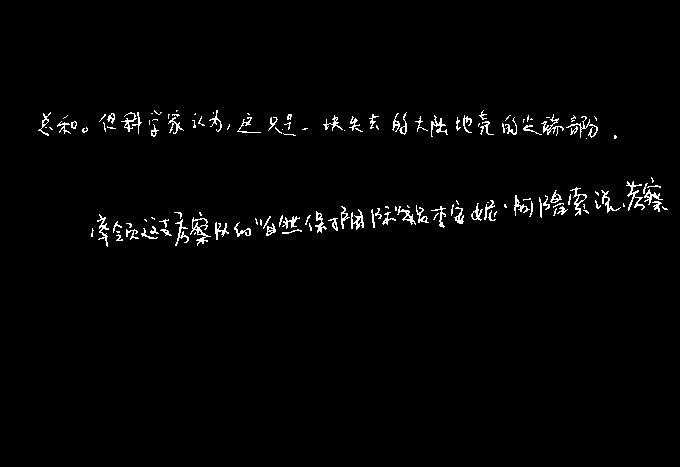 总和。但科学家认为,这只是一块失去的大陆地壳的尖端部分.
率领这支考察队的“自然保护国际”官员李安妮·阿隆索说,考察